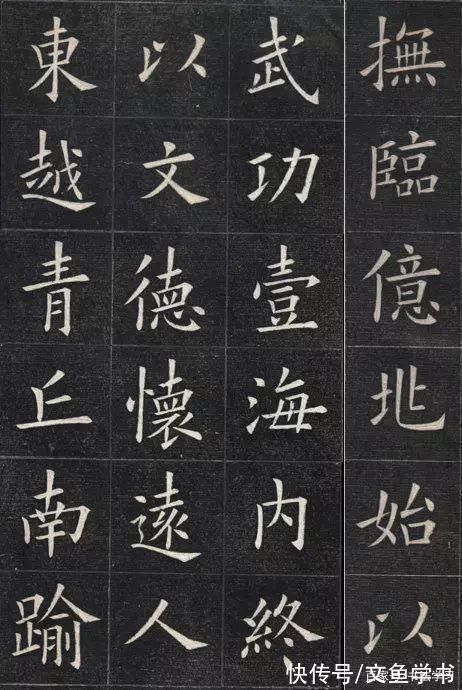 撫臨億兆始以
武功壹海内終
以文德懷遠人
東越青丘南踰
快传号/文鱼学书